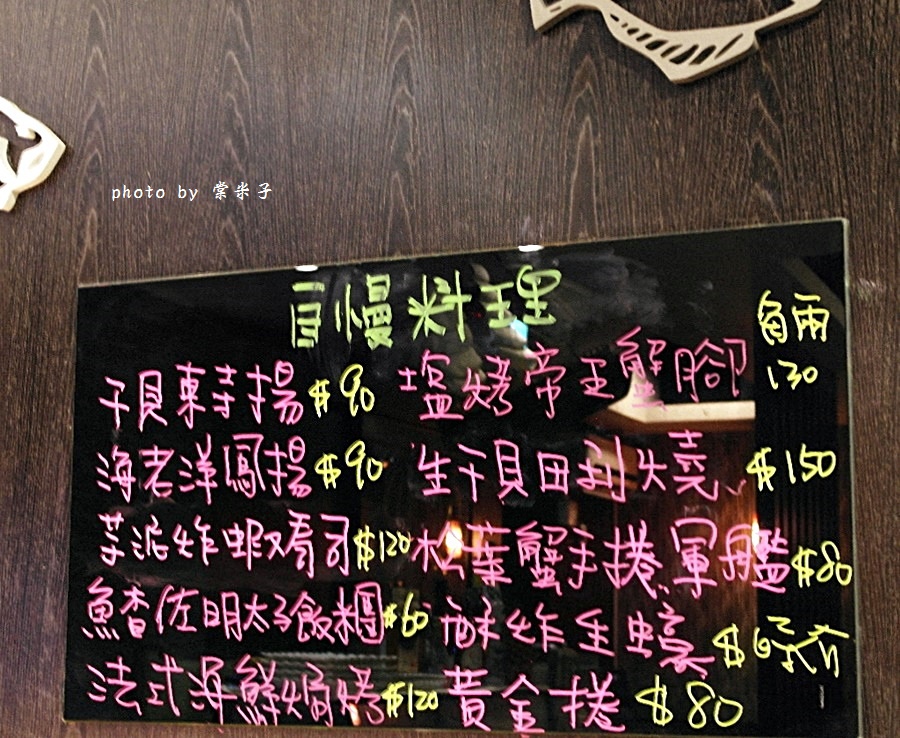 photo by 棠米子
自慢料理
干貝東寺揚 $90
塩烤帝王蟹腳 每兩 130
海老洋風揚 $90
生干貝田利燒 $150
芋泥炸蝦壽司 $120
松葉蟹手捲.軍艦 $80
魚香佐明太子飯糰 $60
酥炸生蠔 $
法式海鮮焗烤 $120
黃金捲 $80